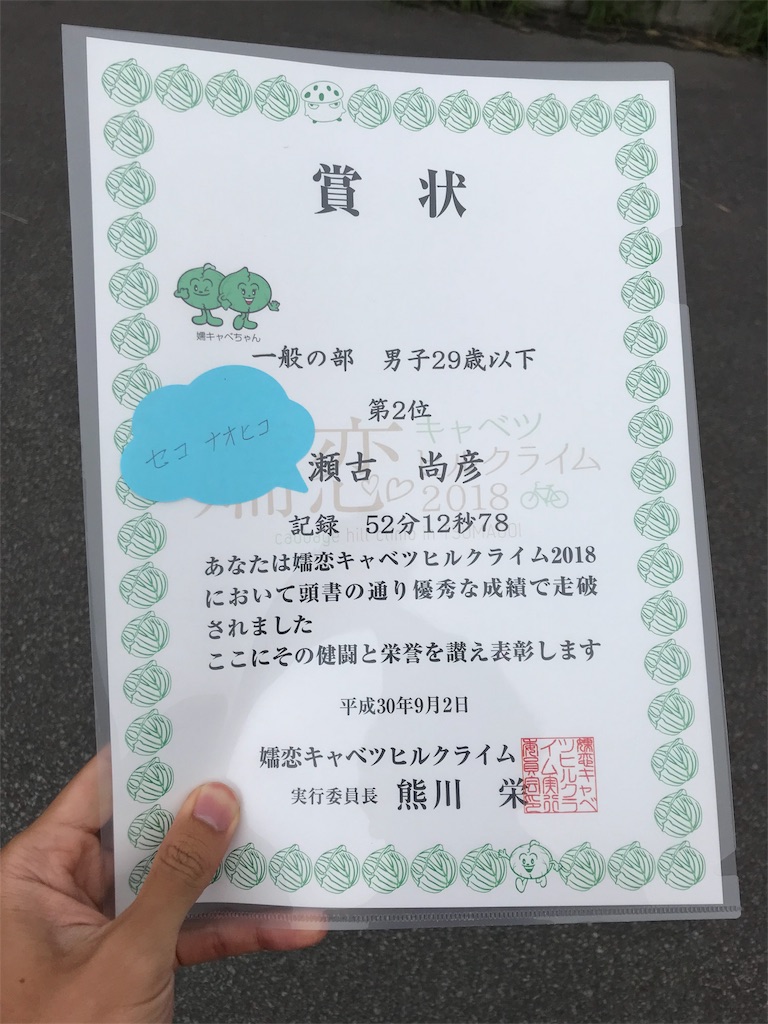 賞 状
嬬キャベちゃん
一般の部 男子29歳以下
第2位
セコ ナオヒコ
瀬古 尚彦
嬬恋
キャベツ
ヒルクライム
2018
cabbage hill climb in TSUMAGOI
記録 52分12秒78
あなたは嬬恋キャベツヒルクライム2018
において頭書の通り優秀な成績で走破
されました
ここにその健闘と栄誉を讃え表彰します
平成30年9月2日
嬬恋キャベツヒルクライム
実行委員長 熊川 栄
嬬恋キャベ
ツヒルクラ
イム実行
委員会印